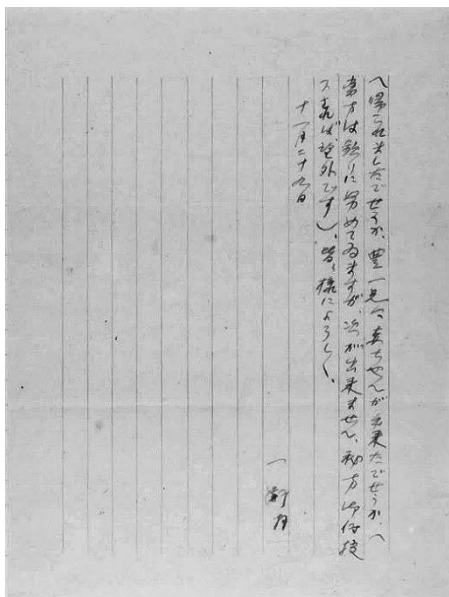 へ帰られましたでせうか、豊一兄に赤ちやんが出来たでせうか、(
当方は頻りに努めてゐますが、次が出来ません、秘方御伝授
下されば望外です)、皆々様によろしく、
十一月二十九日
一